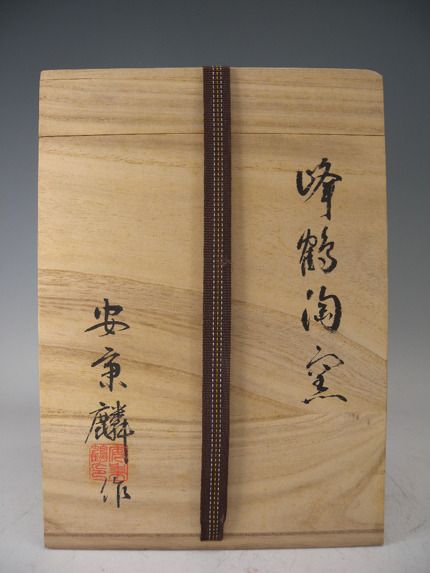 峰鶴陶窯
安麟作